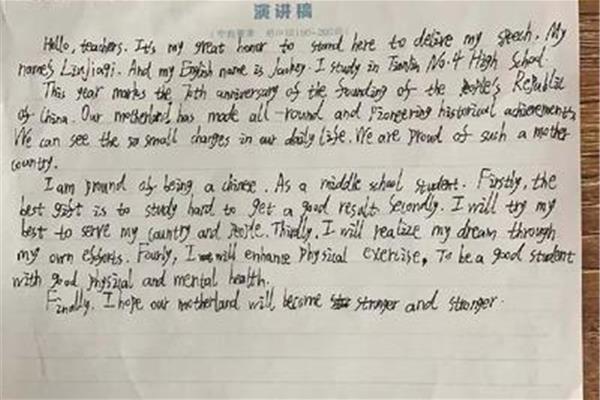 演讲稿
Hello, teachers. It's my great honor to stand here to delive my speech. My
name's Linjiaqi. And my English name is Jackey. I study in Tianjin No.4 High School.
This year marks the 70th anniversary of the founding of the people's Republic
of China. Our motherland has made all-round and pioneering historical achievements.
We can see the so small changes in our daily life. We are proud of such a mother
country.
I am pround of being a chinese. As a middle school student. Firstly, the
best gift is to study hard to get a good result. Secondly. I will try my
best to serve my country and people. Thirdly, I will realize my dream through
my own efforts. Fourly, I will enhance physical exercise, To be a good student
with good physical and mental health.
Finally. I hope our motherland will become stronger and stronger.